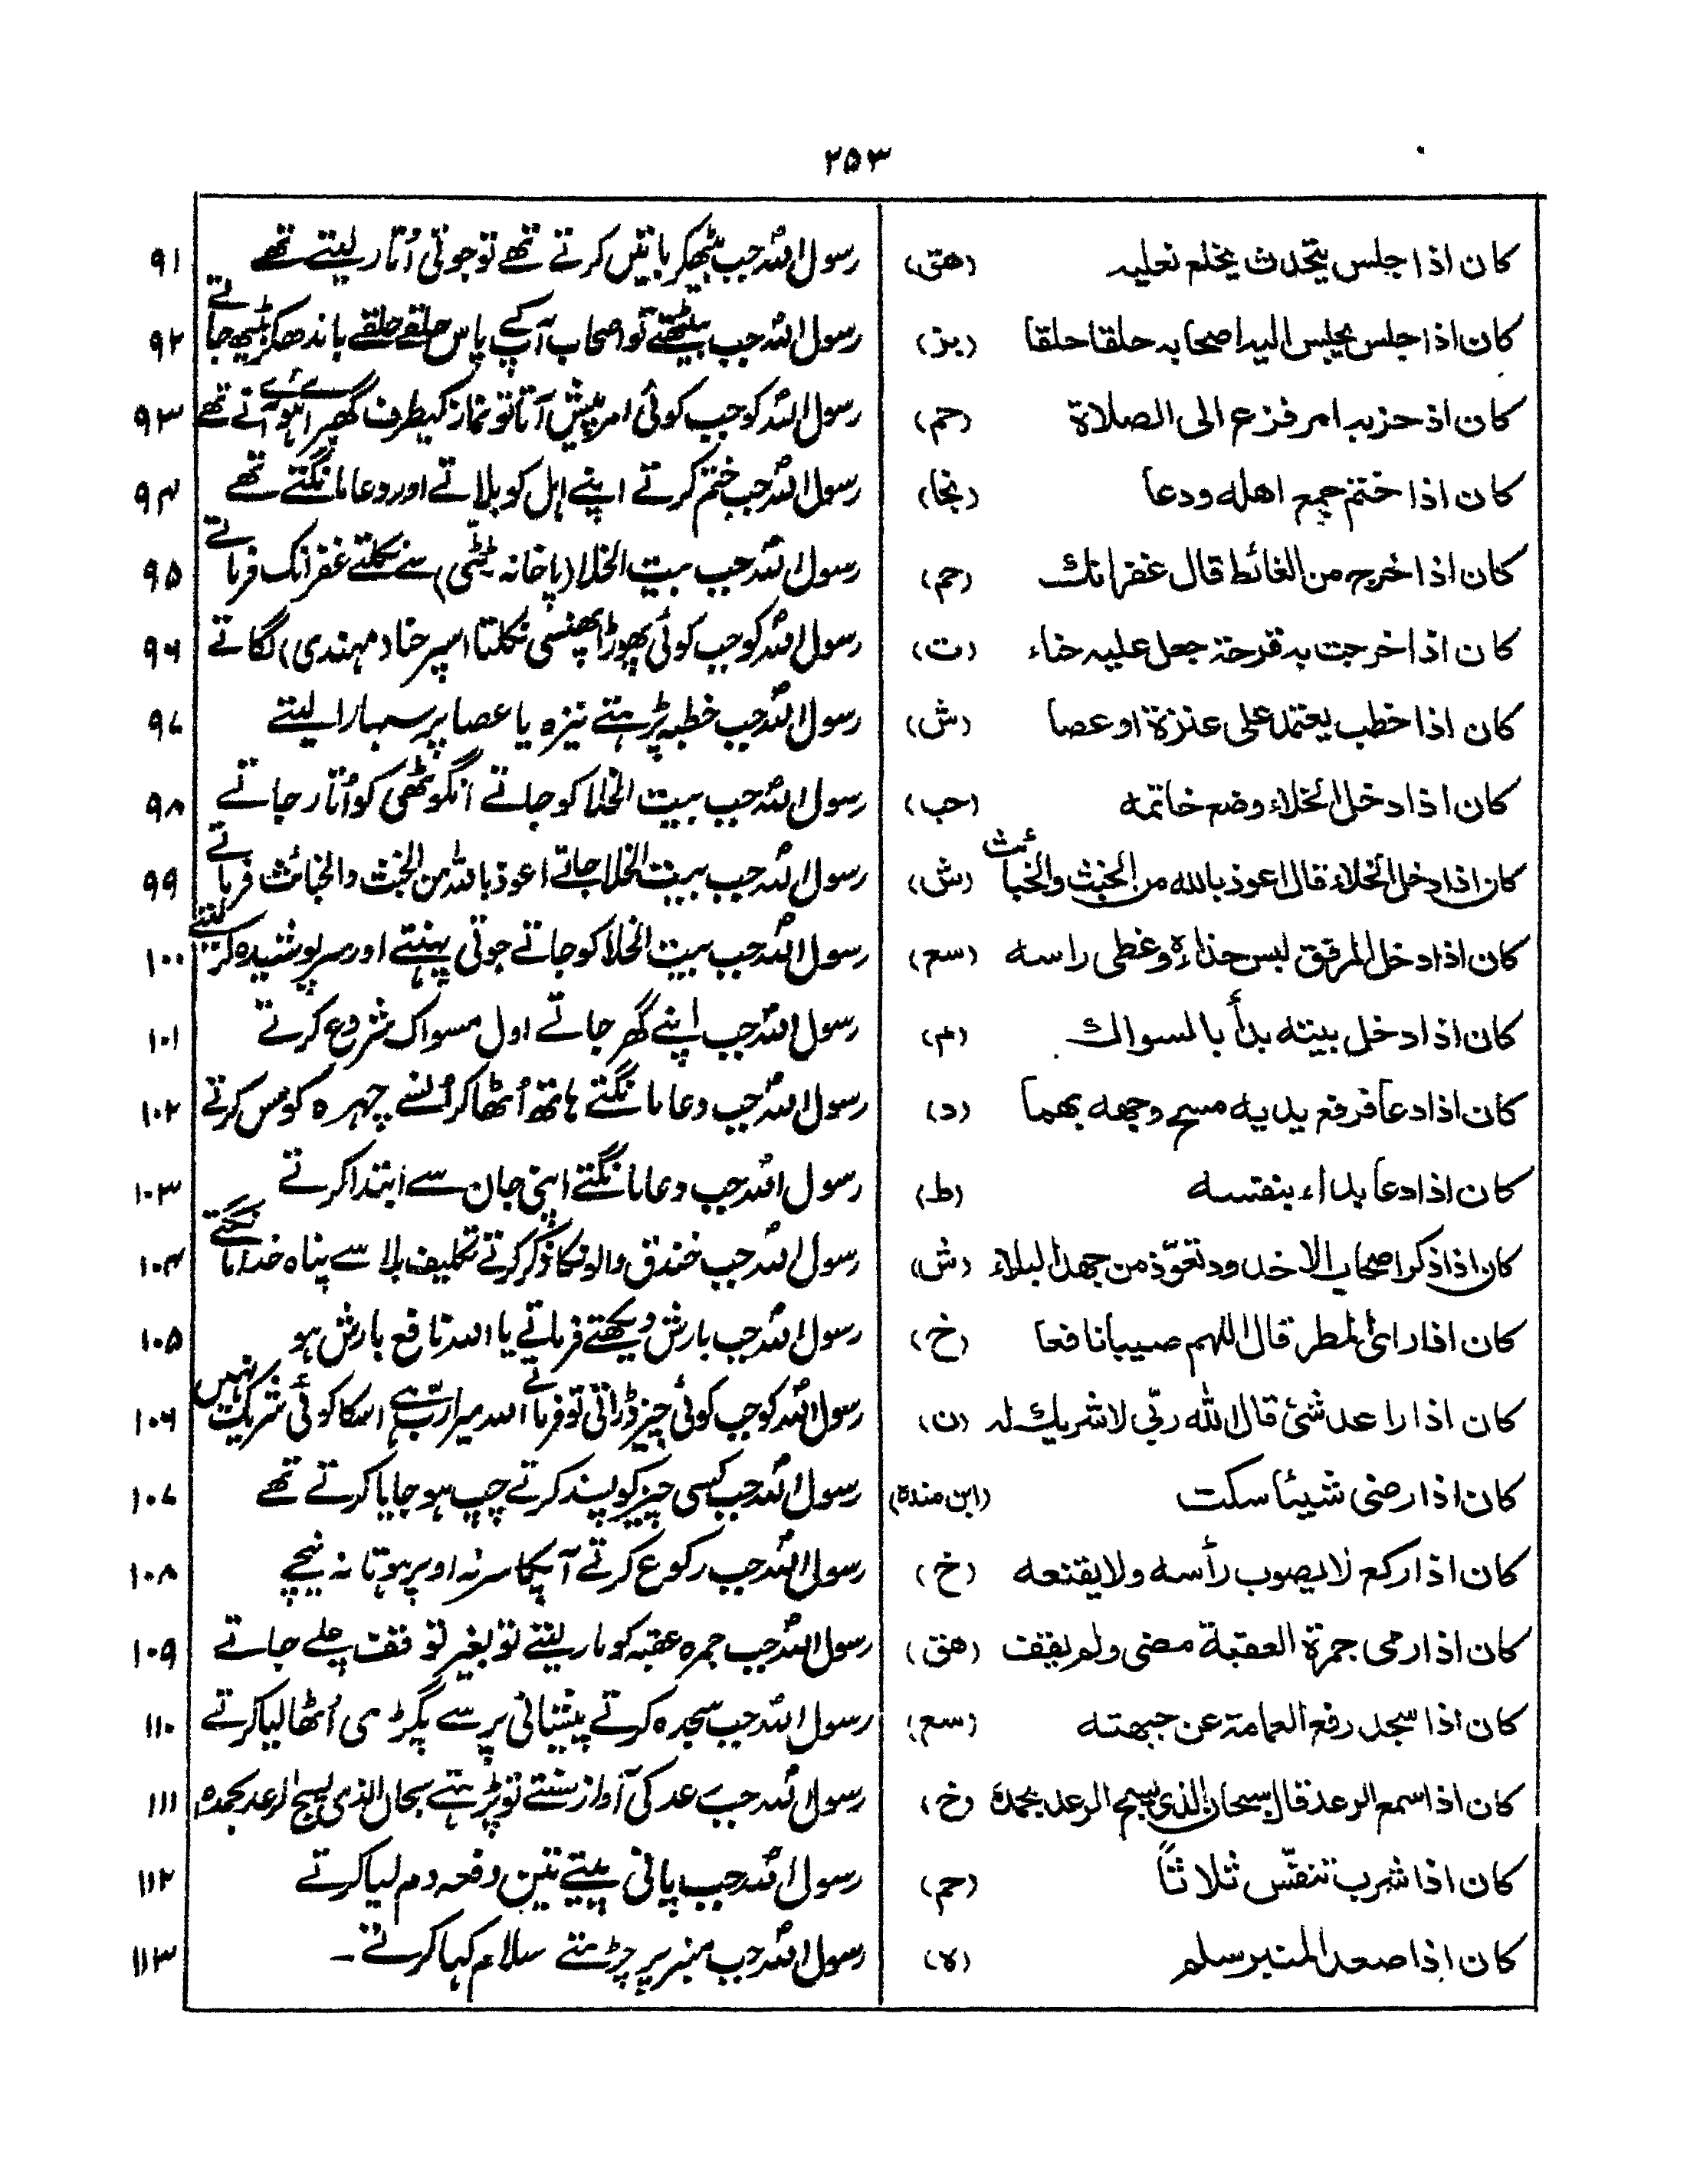 ۲۵۳
کان اذا جلس یتحدث یخلع نعلیہ (ھق) رسول اللہ جب بیٹھکر باتیں کرتے تھے تو جوتی اُتار لیتے تھے ۹۱
کان اذا جلس یجلس الیہ اصحابہ حلقا حلقا (بز) رسول اللہ جب بیٹھتے تو اصحاب آپ کے پاس حلقے حلقے باندھکر بیٹھ جاتے ۹۲
کان اذ حزبہ امر فزع الی الصلاۃ (حم) رسول اللہ کو جب کوئی امر پیش آتا تو نماز کیطرف گھبرائے ہوئے آتے تھے ۹۳
کان اذا ختم جمع اھلہ ودعا (نجا) رسول اللہ جب ختم کرتے اپنے اہل کو بلاتے اور دعا مانگتے تھے ۹۴
کان اذا خرج من الغائط قال غفرانک (حم) رسول اللہ جب بیت الخلا (پاخانہ ٹٹی) سے نکلتے غفرانک فرماتے ۹۵
کان اذا خرجت بہ قرحۃ جعل علیہ حناء (ت) رسول اللہ کو جب کوئی پھوڑا پھنسی نکلتا اسپر حنا (مہندی) لگاتے ۹۶
کان اذا خطب یعتمد علی عنزۃ او عصا (ش) رسول اللہ جب خطبہ پڑہتے نیزہ یا عصا پر سہارا لیتے ۹۷
کان اذا دخل الخلاء وضع خاتمہ (حب) رسول اللہ جب بیت الخلا کو جاتے انگوٹھی کو اُتار جاتے ۹۸
کان اذا دخل الخلاء قال اعوذ باللہ من الخبث والخبائث (ش) رسول اللہ جب بیت الخلا جاتے اعوذ باللہ من الخبث والخبائث فرماتے ۹۹
کان اذا دخل المرفق لبس حذاءہ وغطی راسہ (سع) رسول اللہ جب بیت الخلا کو جاتے جوتی پہنتے اور سر پوشیدہ کر لیتے ۱۰۰
کان اذا دخل بیتہ بدأ بالسواک (م) رسول اللہ جب اپنے گھر جاتے اول مسواک شروع کرتے ۱۰۱
کان اذا دعا فرفع یدیہ مسح وجھہ بھما (د) رسول اللہ جب دعا مانگتے ہاتھ اُٹھا کر اُنسے چہرہ کو مس کرتے ۱۰۲
کان اذا دعا بداء بنفسہ (ط) رسول اللہ جب دعا مانگتے اپنی جان سے ابتدا کرتے ۱۰۳
کان اذا ذکر اصحاب الاخدود تعوّذ من جھد البلاء (ش) رسول اللہ جب خندق والونکا ذکر کرتے تکلیف بلا سے پناہ خدا مانگتے ۱۰۴
کان اذا رائ المطر قال اللہم صیبا نافعا (خ) رسول اللہ جب بارش دیکھتے فرماتے یا اللہ نافع بارش ہو ۱۰۵
کان اذا راعہ شئ قال اللہ ربّی لا شریک لہ (ن) رسول اللہ کو جب کوئی چیز ڈراتی تو فرماتے اللہ میرا ربّ ہے اسکا کوئی شریک نہیں ۱۰۶
کان اذا رضی شیئا سکت (ابن مندۃ) رسول اللہ جب کسی چیز کو پسند کرتے چپ ہو جایا کرتے تھے ۱۰۷
کان اذا رکع لا یصوب رأسہ ولا یقنعہ (خ) رسول اللہ جب رکوع کرتے آپکا سر نہ اوپر ہوتا نہ نیچے ۱۰۸
کان اذا رمی جمرۃ العقبۃ مضی ولم یقف (ھق) رسول اللہ جب جمرہ عقبہ کو مار لیتے تو بغیر توقف چلے جاتے ۱۰۹
کان اذا سجد رفع العمامۃ عن جبھتہ (سع) رسول اللہ جب سجدہ کرتے پیشانی پر سے پگڑی اُٹھا لیا کرتے ۱۱۰
کان اذا سمع الرعد قال سبحان الذی یسبح الرعد بحمدہ (خ) رسول اللہ جب رعد کی آواز سنتے تو پڑہتے سبحان الذی یسبح الرعد بحمدہ ۱۱۱
کان اذا شرب تنفّس ثلاثاً (حم) رسول اللہ جب پانی پیتے تین دفعہ دم لیا کرتے ۱۱۲
کان اذا صعد المنبر سلم (ہ) رسول اللہ جب منبر پر چڑہتے سلام کہا کرتے۔ ۱۱۳